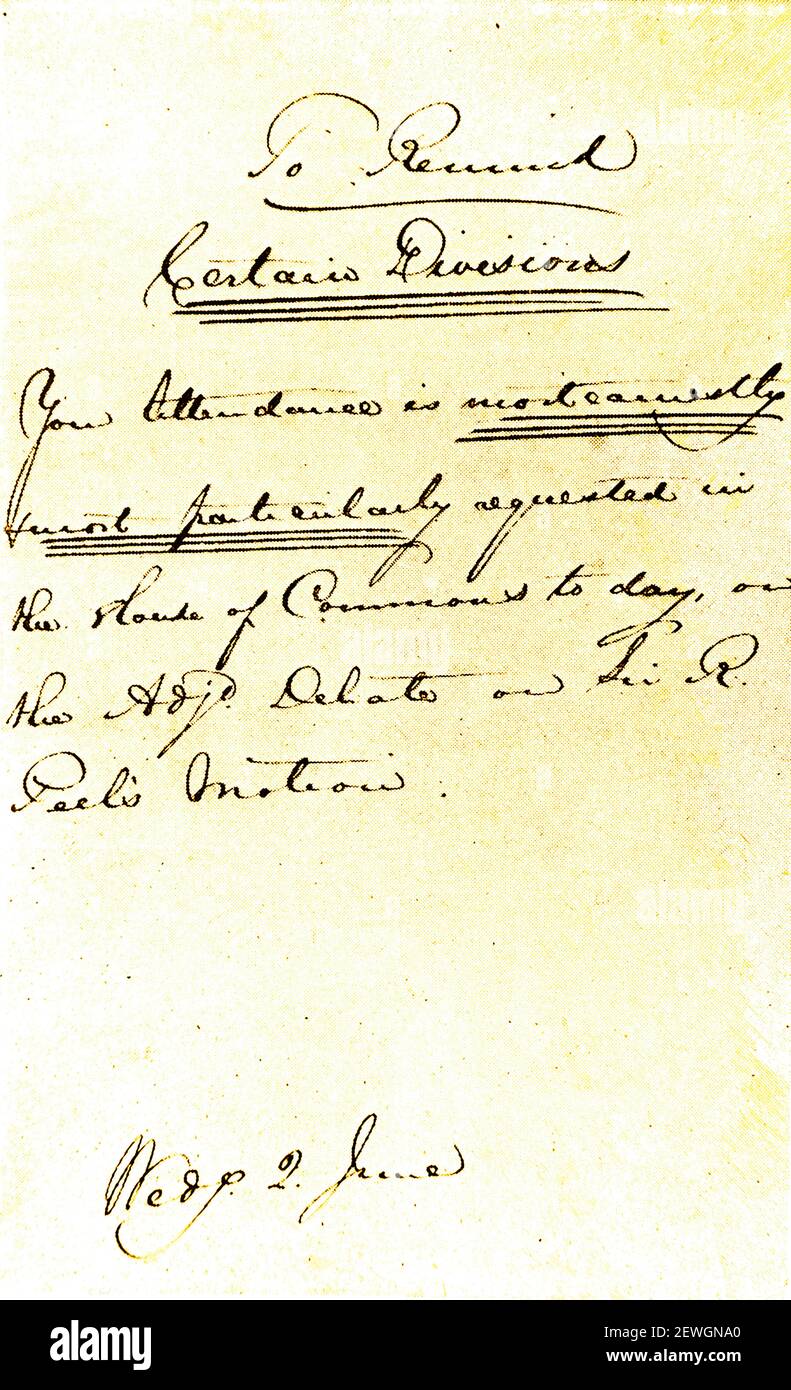 To Remind
Certain Divisions
Your Attendance is most earnestly
& most particularly requested in
the House of Commons to day, on
the Adjd. Debate on Sir R.
Peel's Motion.
Wedy. 2. June
alamy
Image ID: 2EWGNA0
www.alamy.com